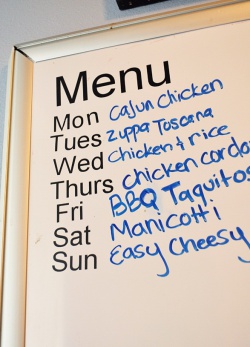 Menu
Mon Cajun Chicken
Tues Zuppa Toscana
Wed Chicken & rice
Thurs Chicken cordo
Fri BBQ Taquitos
Sat Manicotti
Sun Easy Cheesy